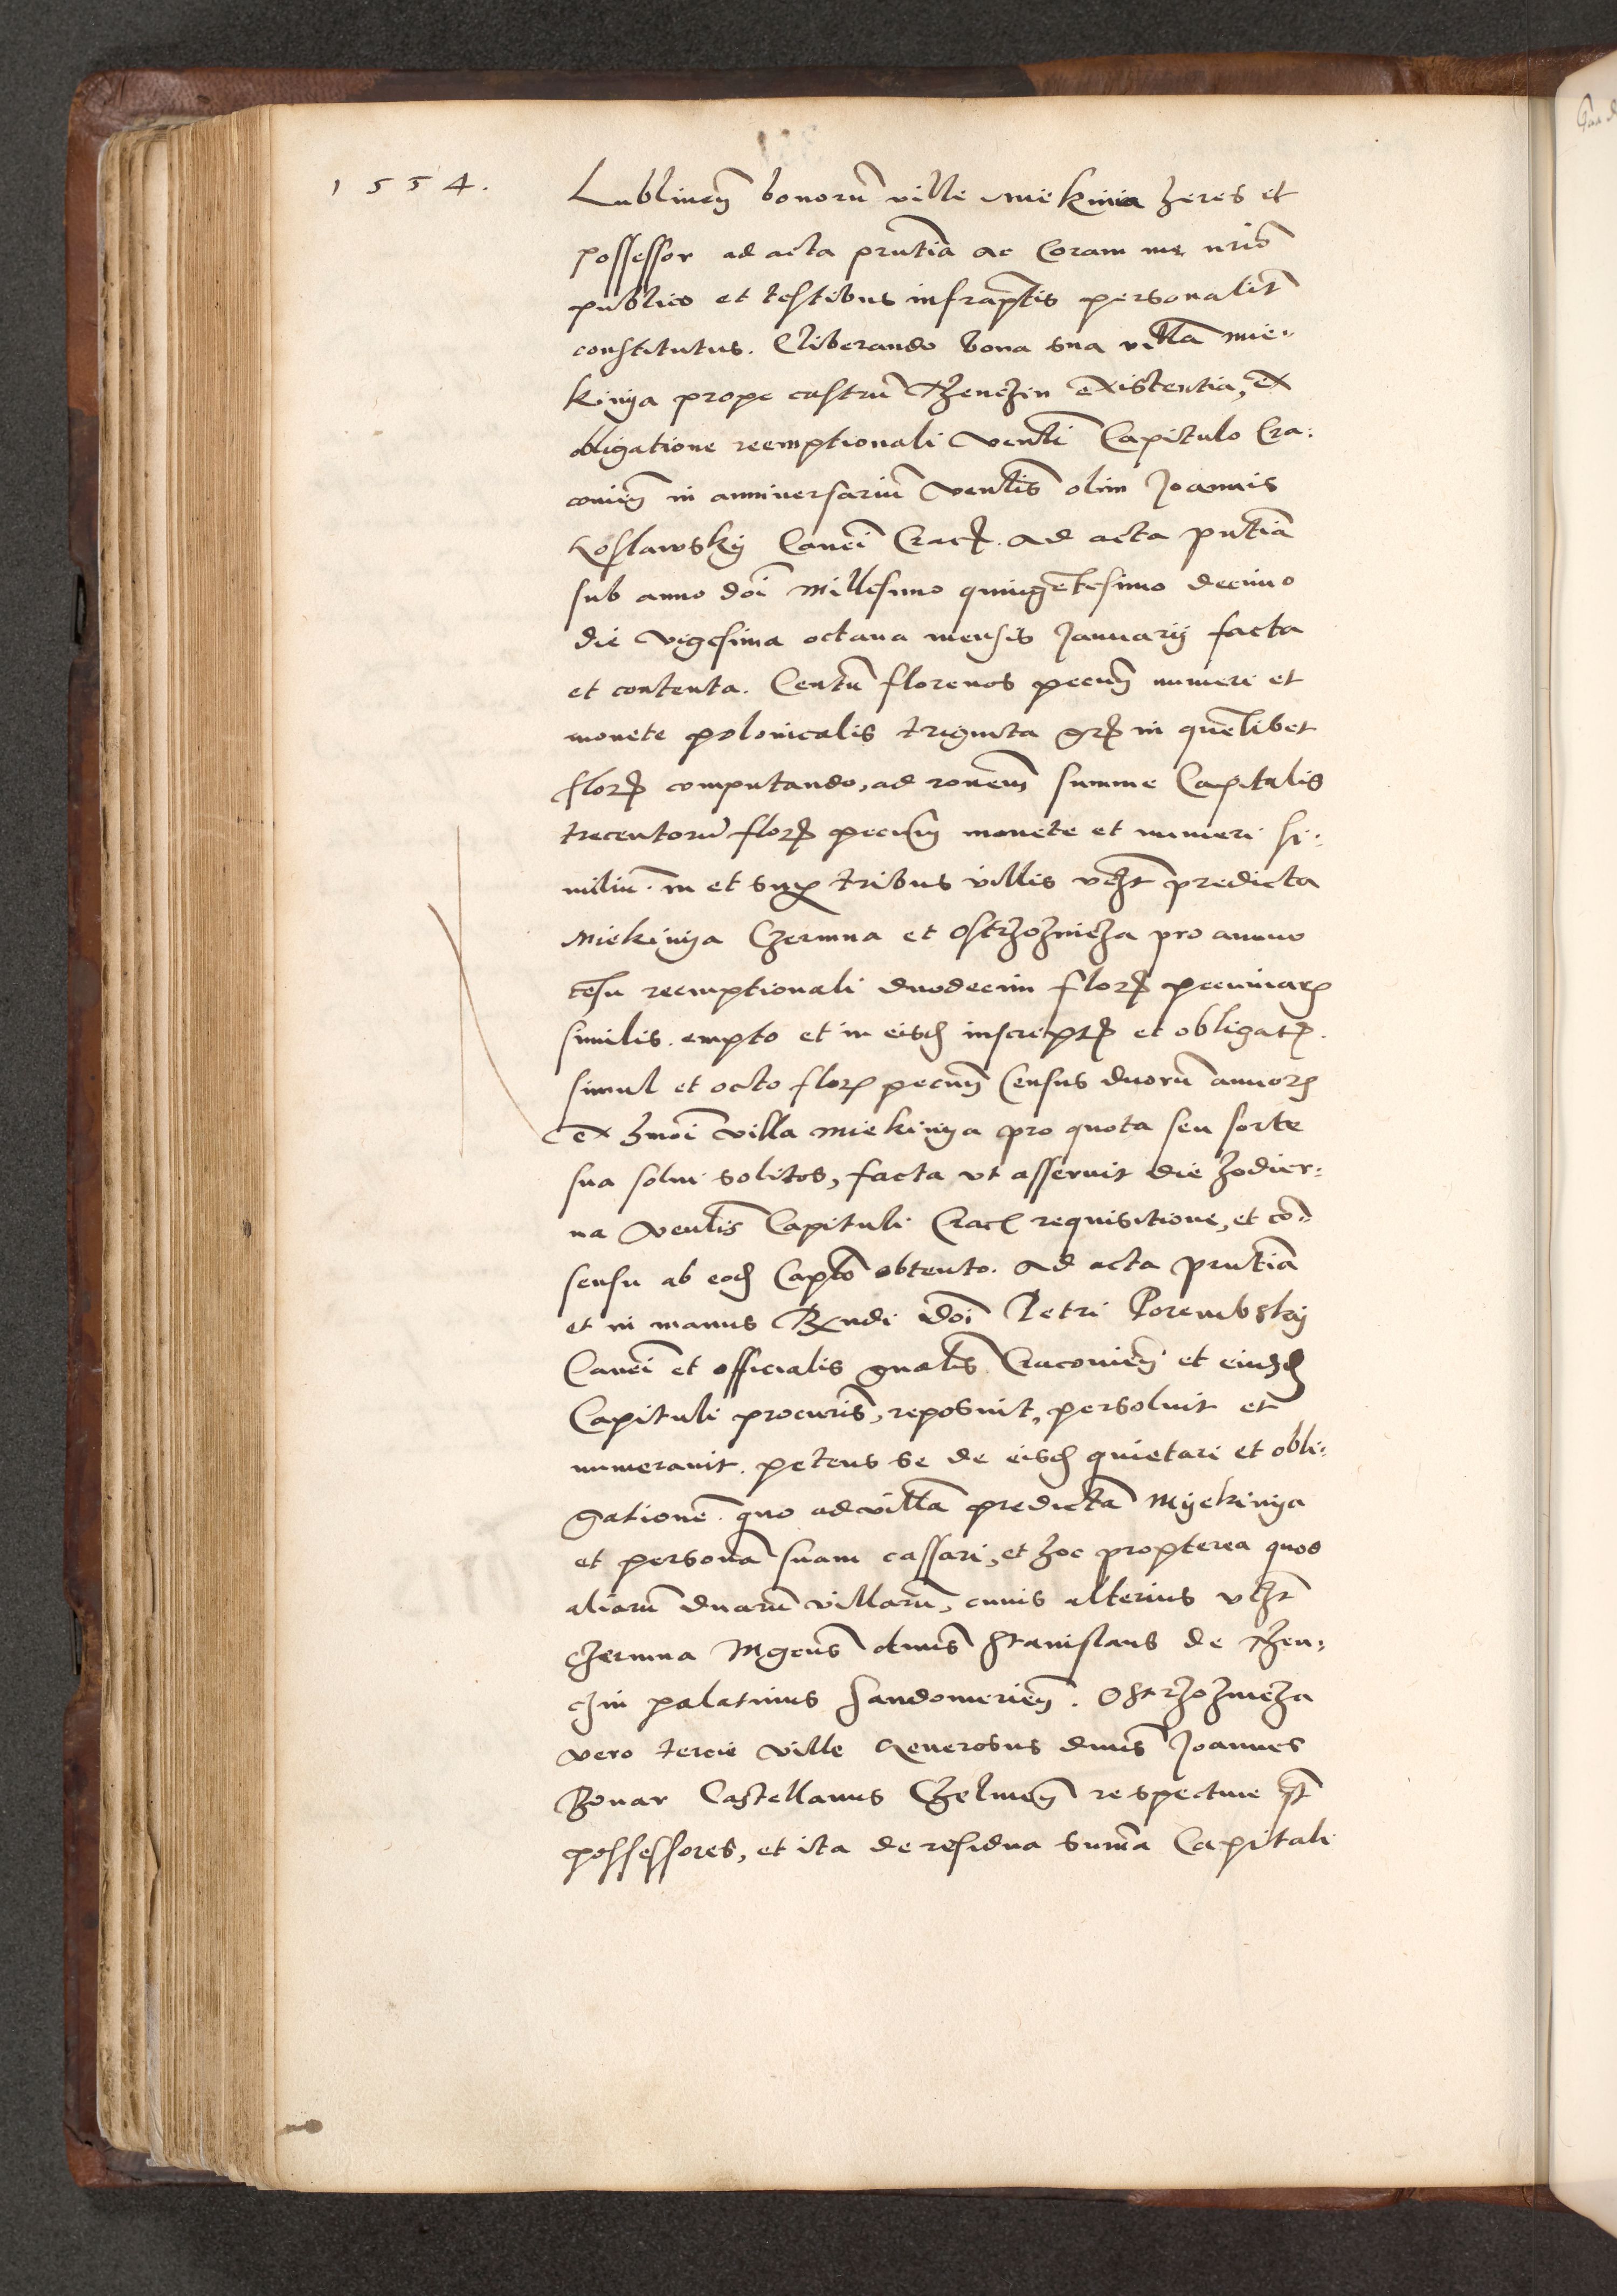 1554.
Lublineñ bonorũ ville Miekinia heres et
possessor ad acta pñtia ac Coram me nrio
publico et testibus infraptis personalit̃
constitutus. Eliberando bona sua villã Mie-
kinya prope castrũ Thenczin existentia, ex
obligatione reemptionali Venli Capitulo Cra-
covieñ in anniversariũ Venlis olim Joannis
Koslawsky Canci Crac. ad acta pñtia
sub anno doi Millesimo quingẽtesimo decimo
die vigesima octava mensis Januarii facta
et contenta. Centũ florenos pecuñ numeri et
monete polonicalis triginta gr̃ in quẽlibet
flor̃ computando, ad ronem summe Capitalis
trecentorũ flor̃ pecuñ monete et numeri si-
miliũ. in et sup tribus villis vcz̃t predicta
Miekinya Czermna et Ostrzoznicza pro annuo
cẽsu reemptionali duodecim flor̃ pecuniar̃
similis. empto et in eisd̃ inscript̃ et obligat̃.
simul et octo flor̃ pecuñ Census duorũ annor̃
ex hmõi villa Miekinya pro quota seu sorte
sua solvi solitos, facta ut asseruit die hodier-
na Venlis Capituli Crac requisitione, et cõ-
sensu ab eod̃ Caplo obtento. Ad acta pñtia
et in manus Rndi Doi Petri Porembsky
Canci et officialis gnalis Cracovieñ et eiusd̃
Capituli procuris, reposuit, persolvit et
numeravit. petens se de eisd̃ quietari et obli-
gationẽ. quo ad villã predictã Myekinya
et personã suam cassari, et hoc propterea quod
aliarũ duarũ villarũ, cuius alterius vcz̃t
Czermna Mgcus dnus Stanislaus de Then-
czin palatinus Sandomirieñ. Ostrzoznicza
vero tercie ville Generosus dnus Joannes
Bonar Castellanus Chelmeñ respective st̃
possessores, et ita de residua suma Capitali